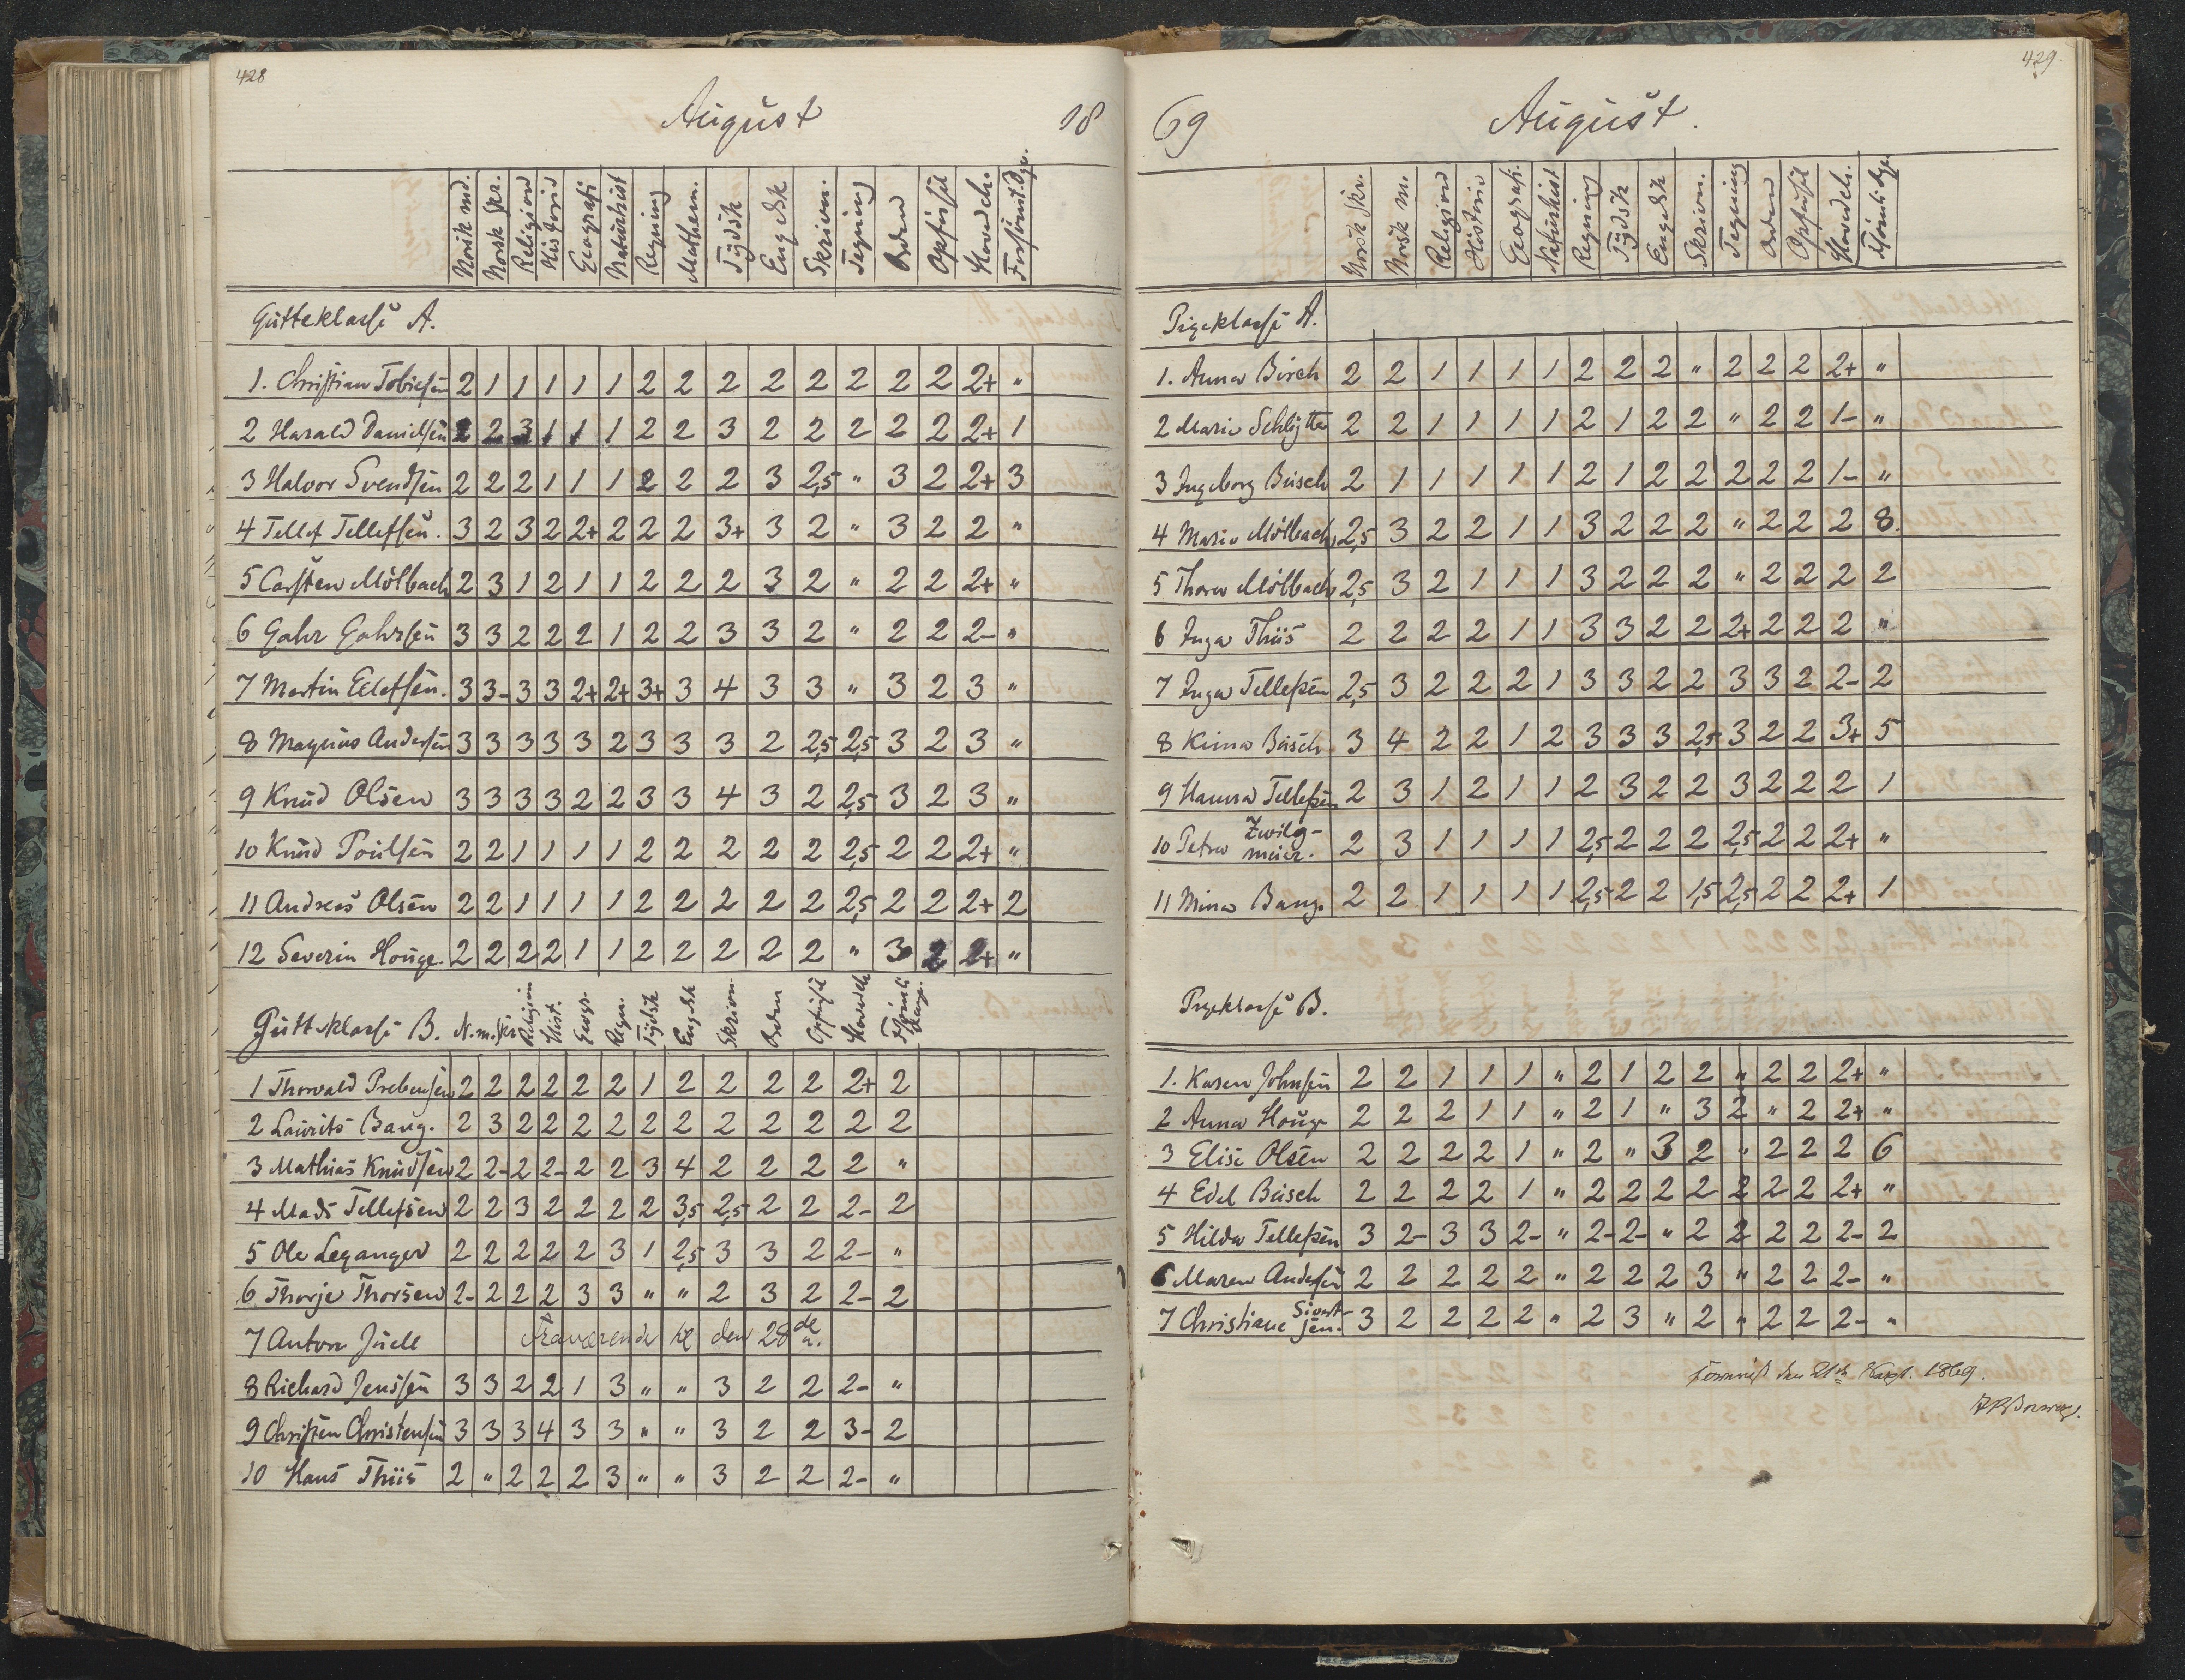 428
August
18
Norsk md. Norsk Skr. Religion Historie Geografi Naturhist Regning Mathem. Tÿdsk Engelsk Skrivn. Tegning Orden Opførsel Hovedch. Forsömt. Dge.
Gutteklasse A.
1. Christian Tobiesen 2 1 1 1 1 1 2 2 2 2 2 2 2 2 2+ "
2 Harald Danielsen 2 2 3 1 1 1 2 2 3 2 2 2 2 2 2+ 1
3 Halvor Svendsen 2 2 2 1 1 1 2 2 2 3 2,5 " 3 2 2+ 3
4 Tellef Tellefsen. 3 2 3 2 2+ 2 2 2 3+ 3 2 " 3 2 2 "
5 Carsten Mölbach 2 3 1 2 1 1 2 2 2 3 2 " 2 2 2+ "
6 Gahr Gahrsen 3 3 2 2 2 1 2 2 3 3 2 " 2 2 2- "
7 Martin Ellefsen. 3 3- 3 3 2+ 2+ 3+ 3 4 3 3 " 3 2 3 "
8 Magnus Andersen 3 3 3 3 3 2 3 3 3 2 2,5 2,5 3 2 3 "
9 Knud Olsen 3 3 3 3 2 2 3 3 4 3 2 2,5 3 2 3 "
10 Knud Poulsen 2 2 1 1 1 1 2 2 2 2 2 2,5 2 2 2+ "
11 Andreas Olsen 2 2 1 1 1 1 2 2 2 2 2 2,5 2 2 2+ 2
12 Severin Houge. 2 2 2 2 1 1 2 2 2 2 2 " 3 2 2+ "
Gutteklasse B. N. m. Skr Religion Hist. Geogr. Regn. Tÿdsk Engelsk Skrivn. Orden Opførsel Hovedch
1 Thorvald Prebensen 2 2 2 2 2 2 1 2 2 2 2 2+ 2
2 Laurits Bang. 2 3 2 2 2 2 2 2 2 2 2 2 2
3 Mathias Knudsen 2 2- 2 2- 2 2 3 4 2 2 2 2 "
4 Mads Tellefsen 2 2 3 2 2 2 2 3,5 2,5 2 2 2- 2
5 Ole Leganger 2 2 2 2 2 3 1 2,5 3 3 2 2- "
6 Thorje Thorsen 2- 2 2 2 3 3 " " 2 3 2 2- 2
7 Anton Juell fraværende den 28de
8 Richard Jenssen 3 3 2 2 1 3 " " 3 2 2 2- "
9 Christen Christensen 3 3 3 4 3 3 " " 3 2 2 3- 2
10 Hans Thiis 2 " 2 2 2 3 " " 3 2 2 2- "
429.
69
August.
Norsk Skr. Norsk m. Religion Historie Geografi. Naturhist Regning Tÿdsk Engelsk Skrivn. Tegning Orden Opførsel Hovedch.
Pigeklasse A.
1. Anna Birch 2 2 1 1 1 1 2 2 2 " 2 2 2 2+ "
2 Marie Schlytter 2 2 1 1 1 1 2 1 2 2 " 2 2 1- "
3 Ingeborg Busch 2 1 1 1 1 1 2 1 2 2 2 2 2 1- "
4 Marie Mölbach 2,5 3 2 2 1 1 3 2 2 2 " 2 2 2 8.
5 Thora Mölbach 2,5 3 2 1 1 1 3 2 2 2 " 2 2 2 2
6 Inga Thiis 2 2 2 2 1 1 3 3 2 2 2+ 2 2 2 "
7 Inga Tellefsen 2,5 3 2 2 2 1 3 3 2 2 3 3 2 2- 2
8 Kima Busch 3 4 2 2 1 2 3 3 3 2,5 3 2 2 3+ 5
9 Hanna Tellefsen 2 3 1 2 1 1 2 3 2 2 3 2 2 2 1
10 Petra Zwilgmeier. 2 3 1 1 1 1 2,5 2 2 2 2,5 2 2 2+ "
11 Mina Bang. 2 2 1 1 1 1 2,5 2 2 1,5 2,5 2 2 2+ 1
Pigeklasse B.
1. Karen Johnsen 2 2 1 1 1 " 2 1 2 2 " 2 2 2+ "
2 Anna Houge 2 2 2 1 1 " 2 1 " 3 2 " 2 2+ "
3 Elise Olsen 2 2 2 2 1 " 2 " 3 2 " 2 2 2 6
4 Edel Busch 2 2 2 2 1 " 2 2 2 2 2 2 2 2+ "
5 Hilda Tellefsen 3 2- 3 3 2- " 2- 2- " 2 2 2 2 2- 2
6 Maren Andersen 2 2 2 2 2 " 2 2 2 3 " 2 2 2- "
7 Christiane Sivertsen. 3 2 2 2 2 " 2 3 " 2 " 2 2 2- "
den 21de Sept. 1869.